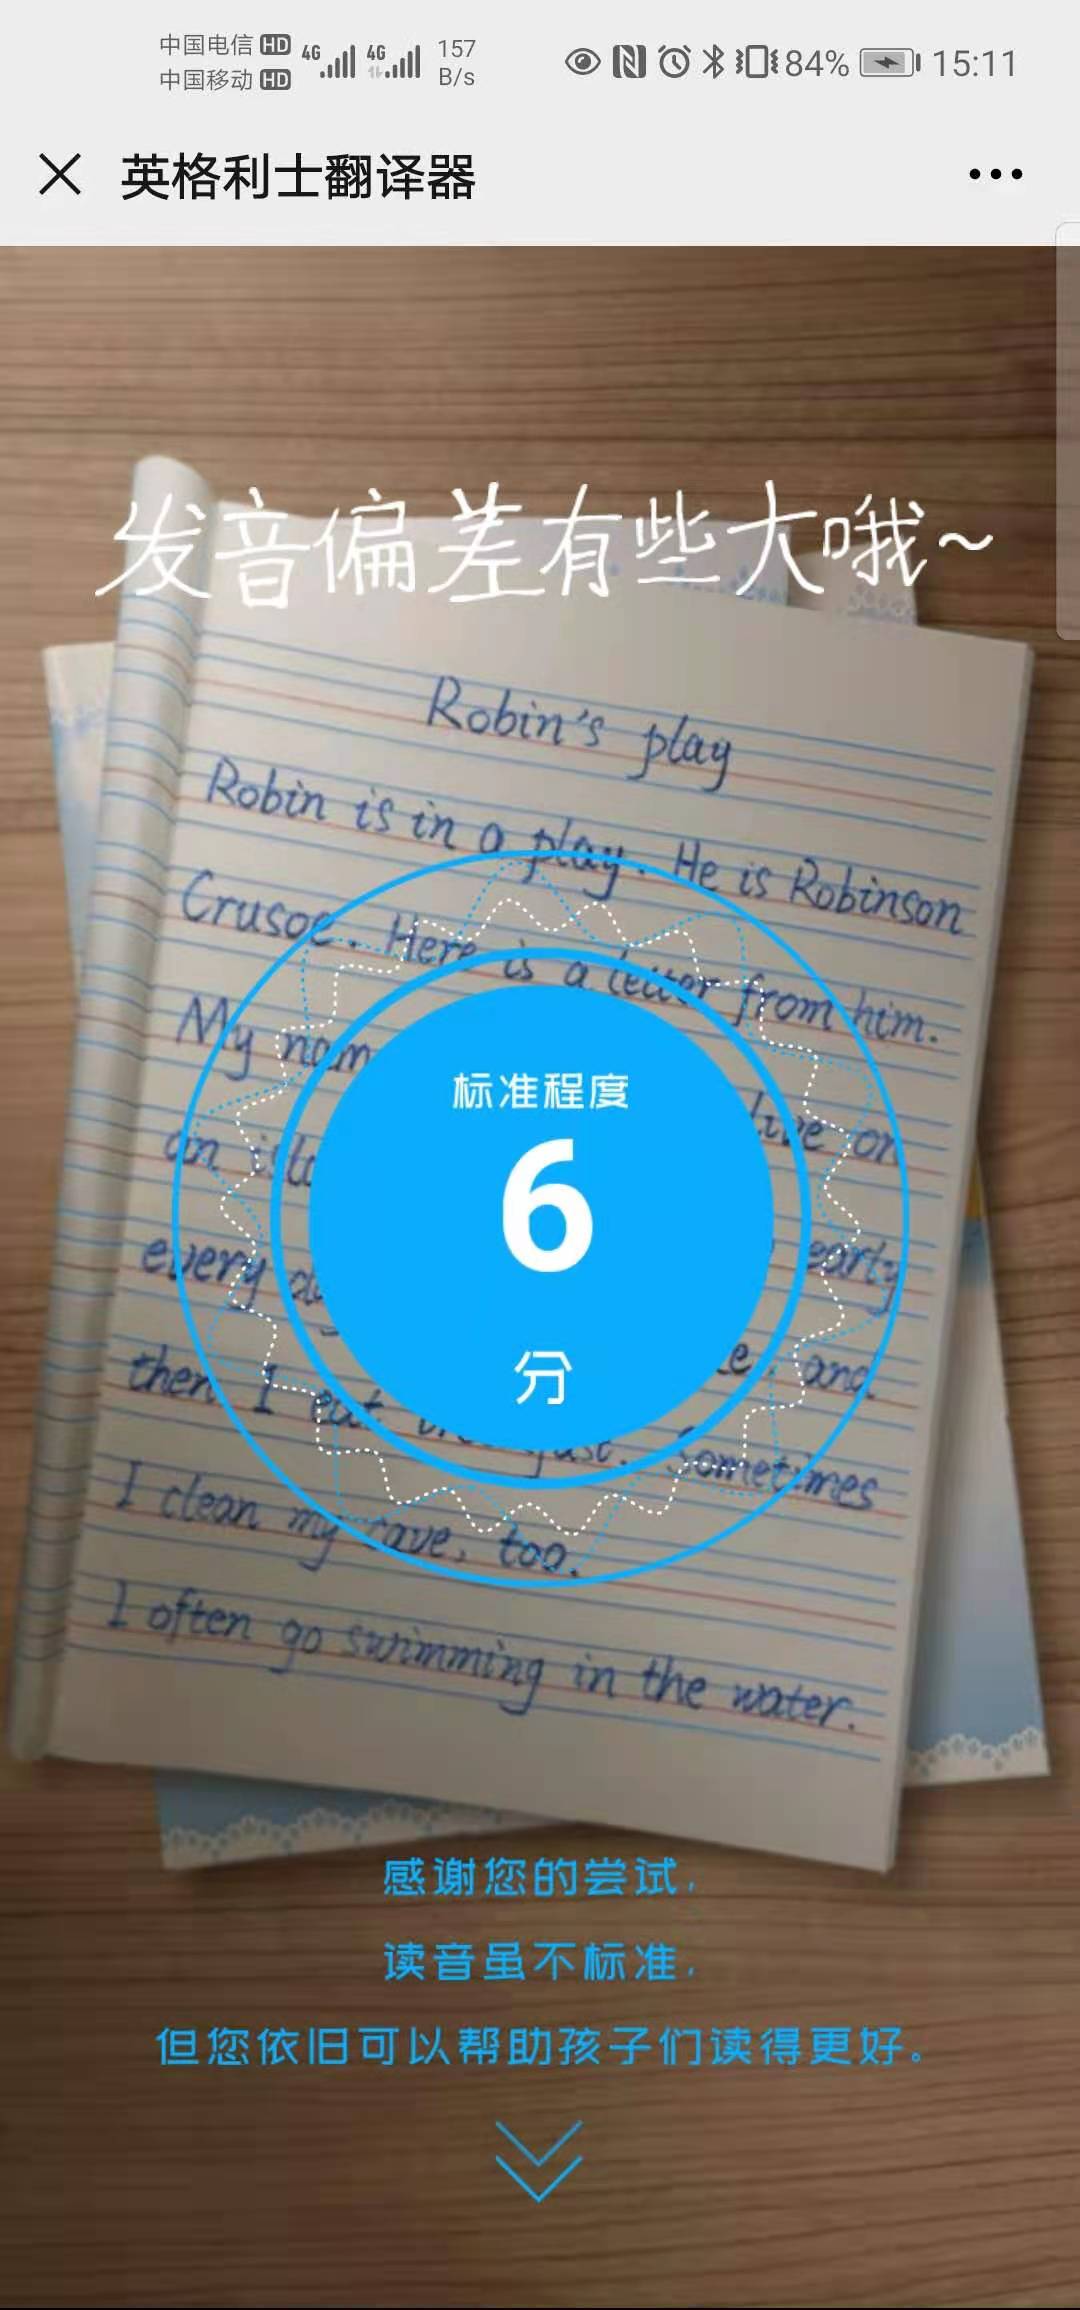 中国电信 HD 4G 4G 157 84% 15:11
中国移动 HD B/s
英格利士翻译器
发音偏差有些大哦~
Robin's play
Robin is in a play. He is Robinson
Crusoe. Here is a letter from him.
My live on
an
every early
then I eat and
Sometimes
I clean my cave, too.
I often go swimming in the water.
标准程度
6
分
感谢您的尝试,
读音虽不标准,
但您依旧可以帮助孩子们读得更好。